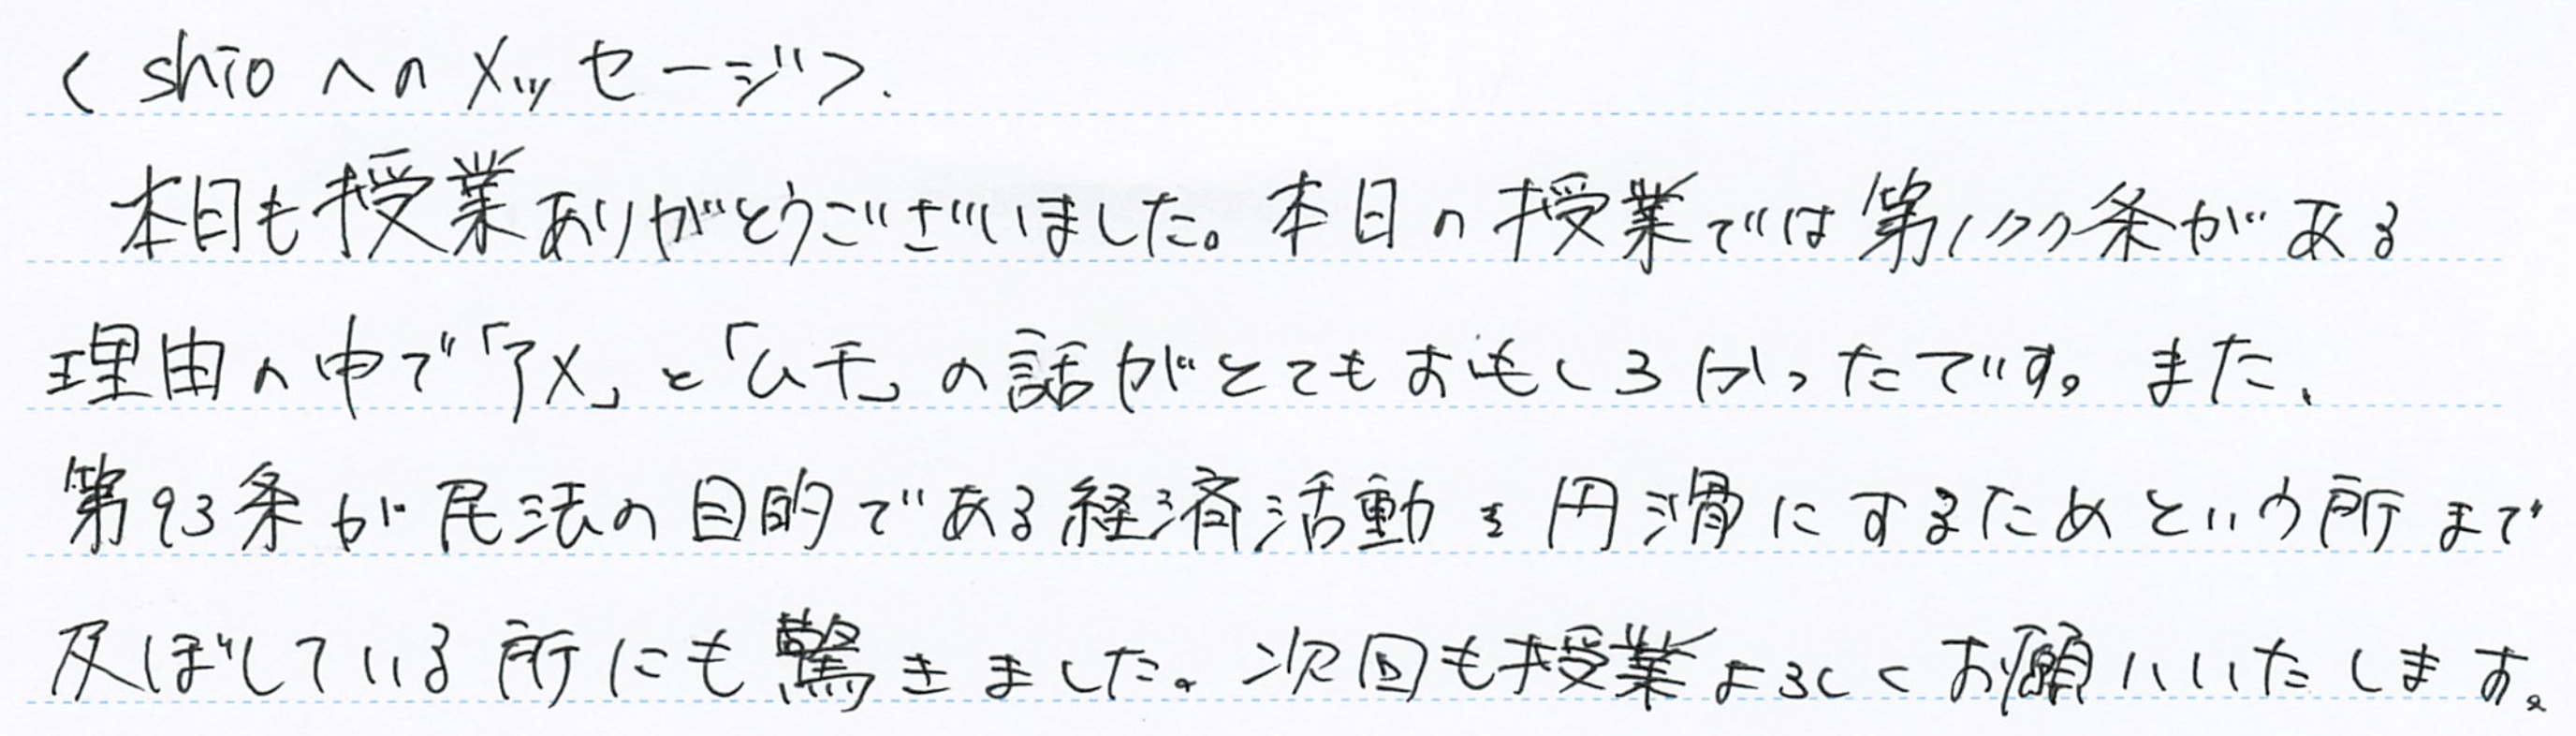 < shio へのメッセージ>.
本日も授業ありがとうございました。本日の授業では第177条がある
理由の中で「アメ」と「ムチ」の話がとてもおもしろかったです。また、
第93条が民法の目的である経済活動を円滑にするためという所まで
及ぼしている所にも驚きました。次回も授業よろしくお願いいたします。